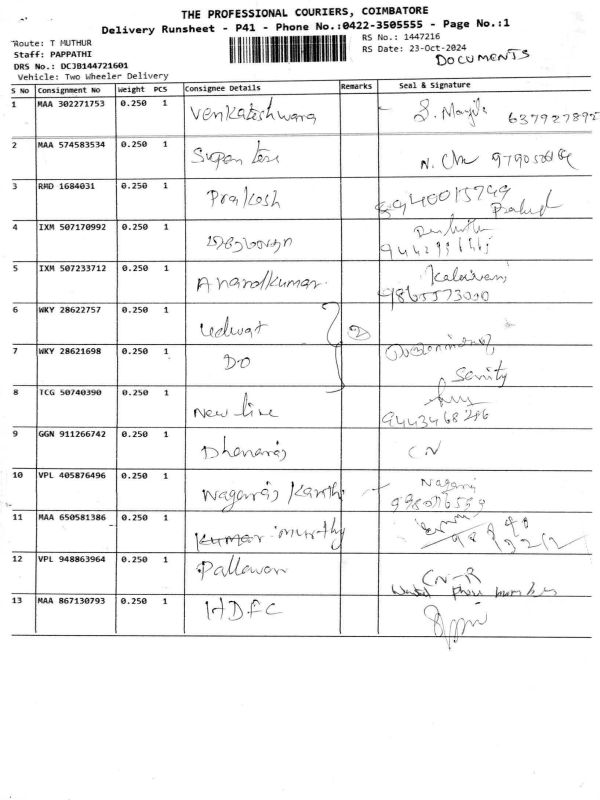 THE PROFESSIONAL COURIERS, COIMBATORE
Delivery Runsheet - P41 - Phone No.:0422-3505555 - Page No.:1
Route: T MUTHUR
RS No.: 1447216
Staff: PAPPATHI
RS Date: 23-Oct-2024
DRS No.: DCJB144721601
DOCUMENTS
Vehicle: Two Wheeler Delivery
S No Consignment No Weight PCS Consignee Details Remarks Seal & Signature
1 MAA 302271753 0.250 1 Venkateshwara
2 MAA 574583534 0.250 1
3 RMD 1684031 0.250 1 Prakash
4 IXM 507170992 0.250 1
5 IXM 507233712 0.250 1 Anandkumar Kalaivani
9865573000
6 WKY 28622757 0.250 1 2
7 WKY 28621698 0.250 1 DO
8 TCG 50740390 0.250 1 New line
9443468286
9 GGN 911266742 0.250 1 Dhanaraj CN
10 VPL 405876496 0.250 1 Nagaraj
11 MAA 650581386 0.250 1 Kumar murthy
12 VPL 948863964 0.250 1 Pallavan CN-R
13 MAA 867130793 0.250 1 HDFC